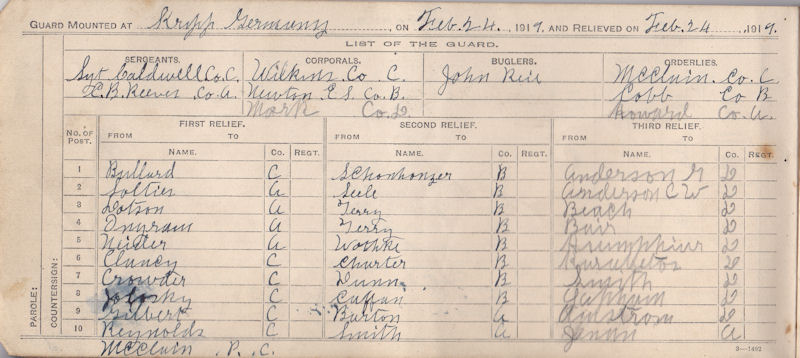 GUARD MOUNTED AT Kripp Germany, ON Feb. 24, 1919, AND RELIEVED ON Feb. 24 1919.
LIST OF THE GUARD.
SERGEANTS. CORPORALS. BUGLERS. ORDERLIES.
Sgt Caldwell Co. C. Wilkins. Co. C. John Reil McClain. Co. C
E. B. Reeves. Co. A. Newton. E. S. Co. B. Cobb Co B
Mark Co. D. Howard Co. A.
No. of Post. FIRST RELIEF. SECOND RELIEF. THIRD RELIEF.
FROM TO FROM TO FROM TO
NAME. Co. REGT. NAME. Co. REGT. NAME. Co. REGT.
1 Bullard C Schonhonzer B Anderson G D
2 Solties A Seele B Anderson C W D
3 Dotson A Terry B Beach D
4 Ingram A Terry B Bair D
5 A Wothke B D
6 Clancy C Charter B D
7 Crowder C Dunn B Smith D
8 C B D
9 Gilbert C Burton A D
10 Reynolds C Smith A A
McClain . P. C.
PAROLE:
COUNTERSIGN:
3—1492